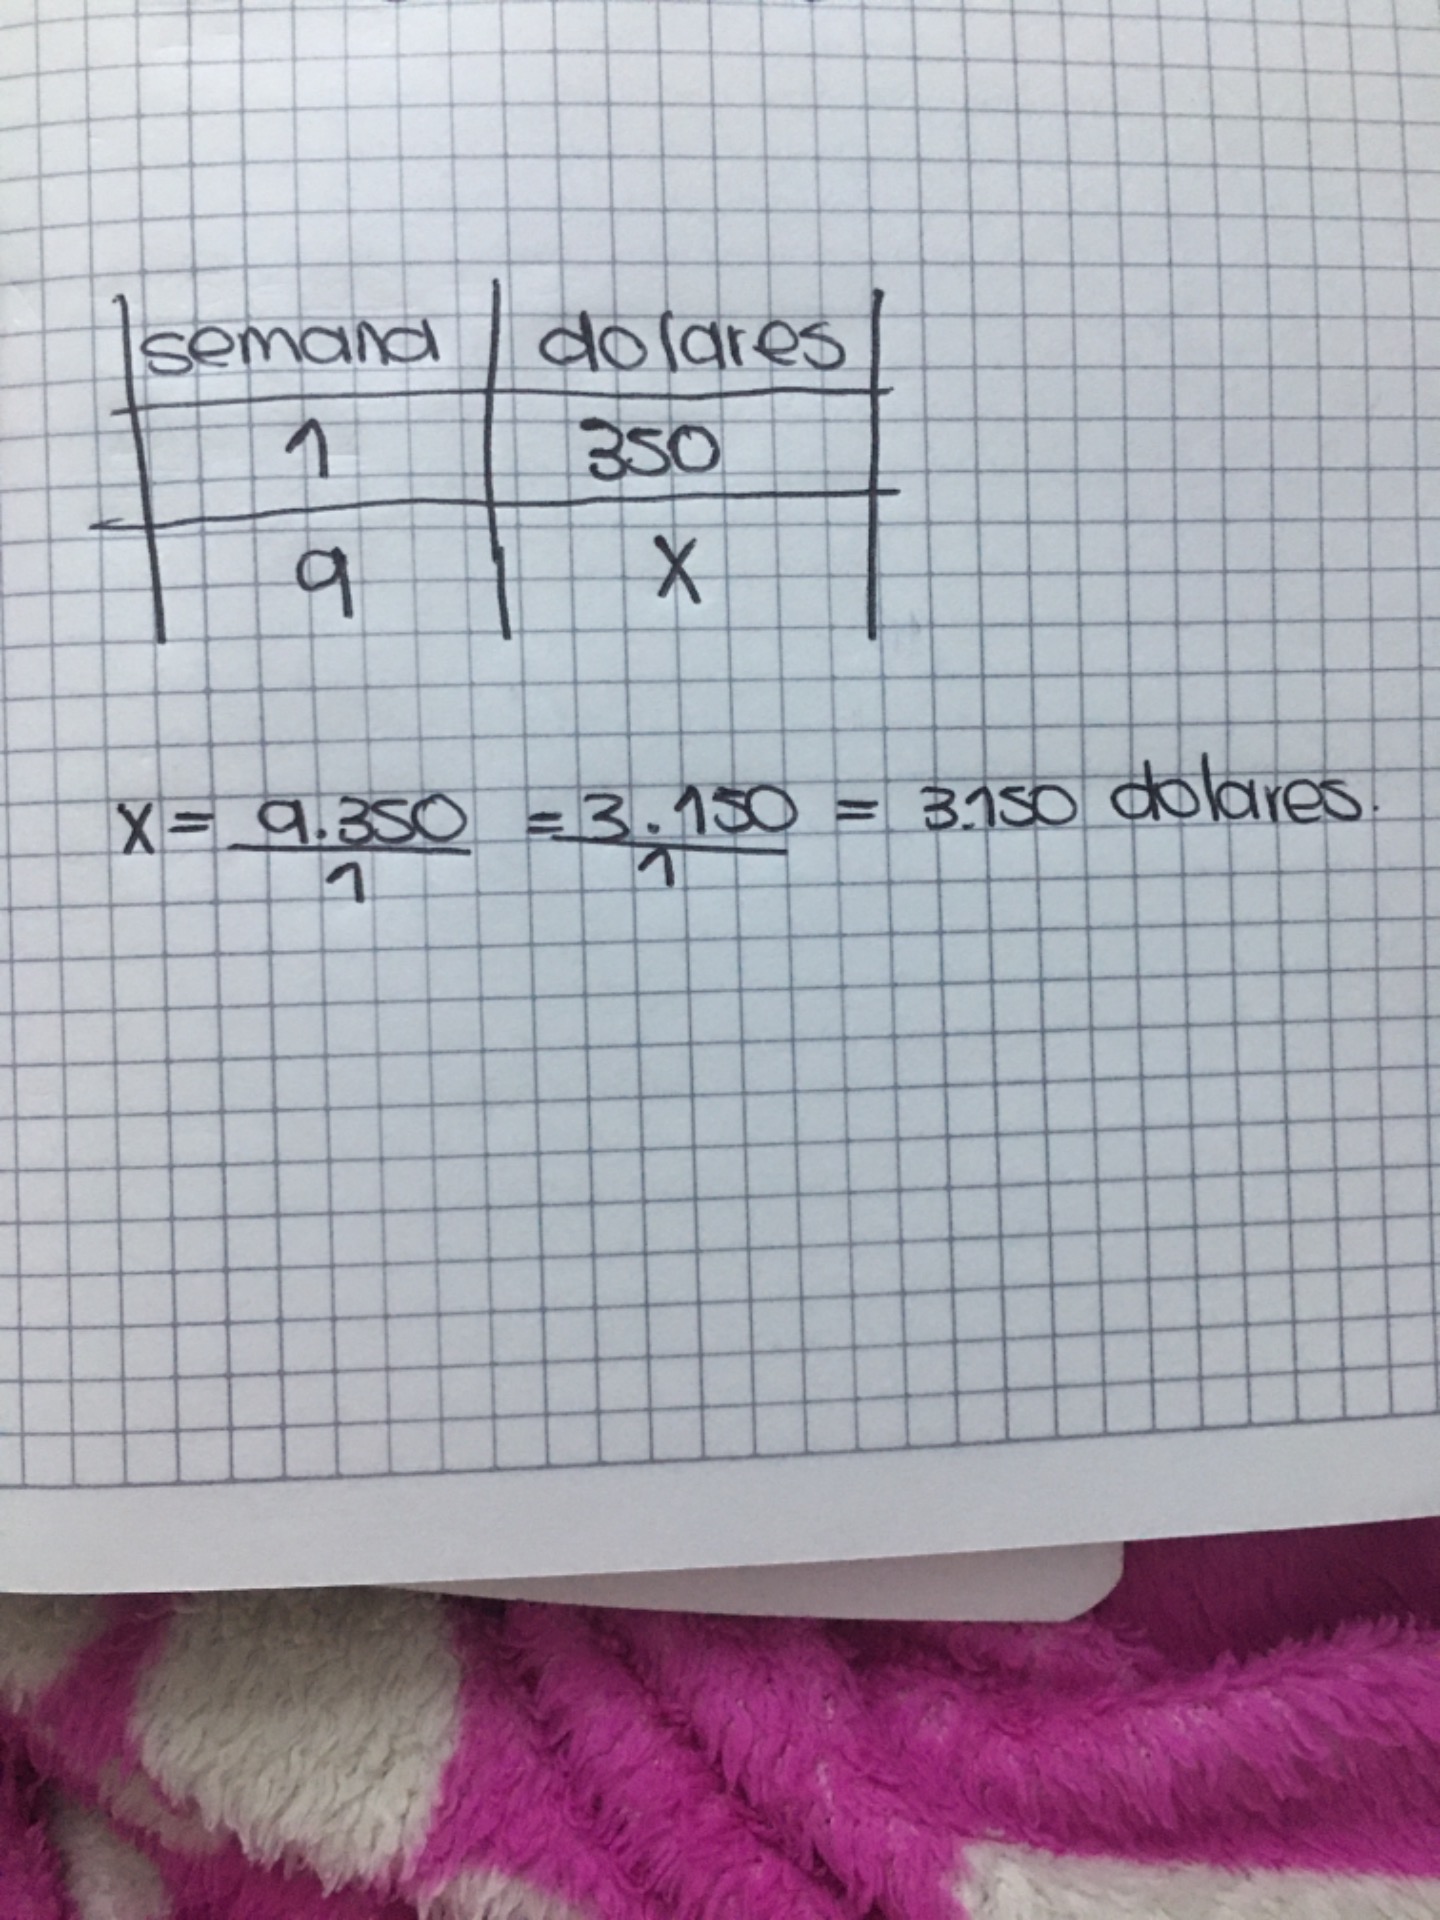 semana dolares
1 350
9 x
x = 9.350/1 = 3.150/1 = 3.150 dolares.